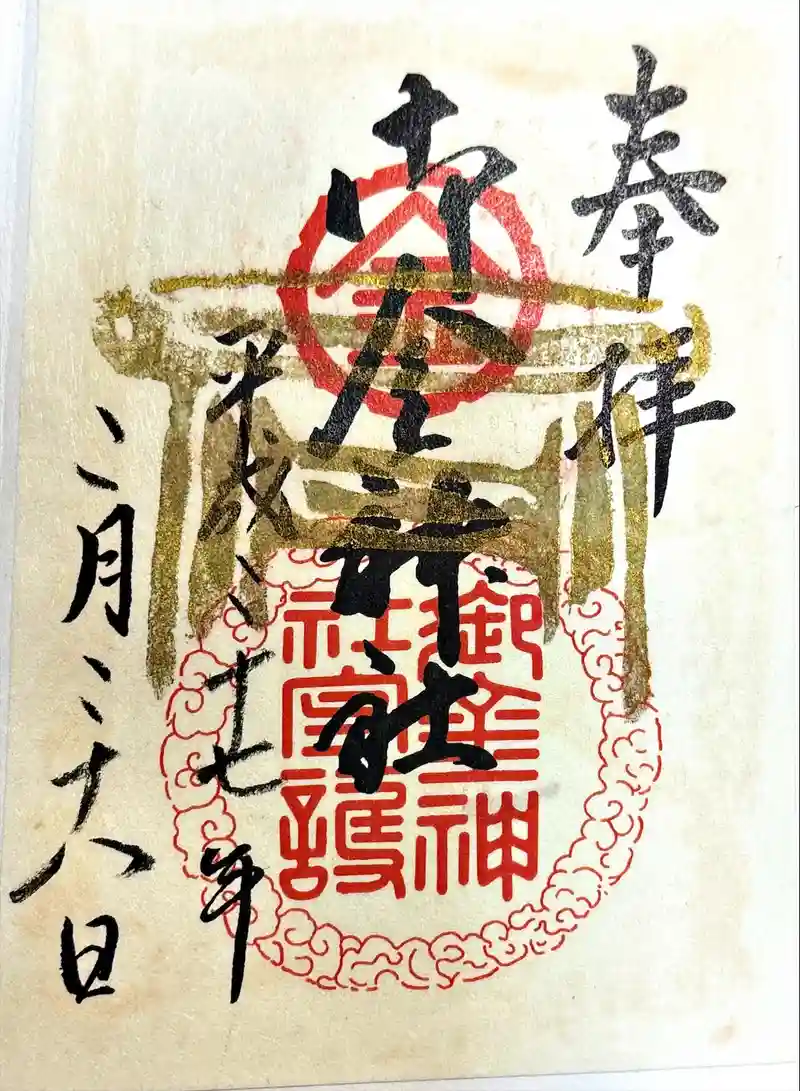 奉拝
御金神社
平成二十七年
二月二十八日
金
御金神
社守護